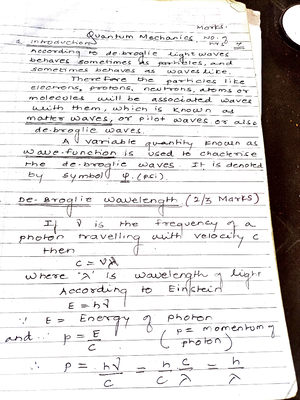 Marks:
Quantum Mechanics No. of
1. Introduction
According to de-broglie light waves
behaves sometimes as particles, and
sometimes behaves as waves like.
Therefore the particles like
electrons, protons, neutrons, atoms or
molecules will be associated waves
with them, which is known as
matter waves, or pilot waves or also
de-broglie waves.
A variable quantity known as
wave-function is used to
the de-broglie waves. It is denoted
by symbol ψ. (psi)
De-Broglie wavelength (2/3 Marks)
If ν is the frequency of a
photon travelling with velocity c
then
c = νλ
where 'λ' is wavelength of light
According to Einstein
E = hν
∵ E = Energy of photon
and p = E/c (p = momentum of photon)
∴ p = hν/c = h/c c/λ = h/λ